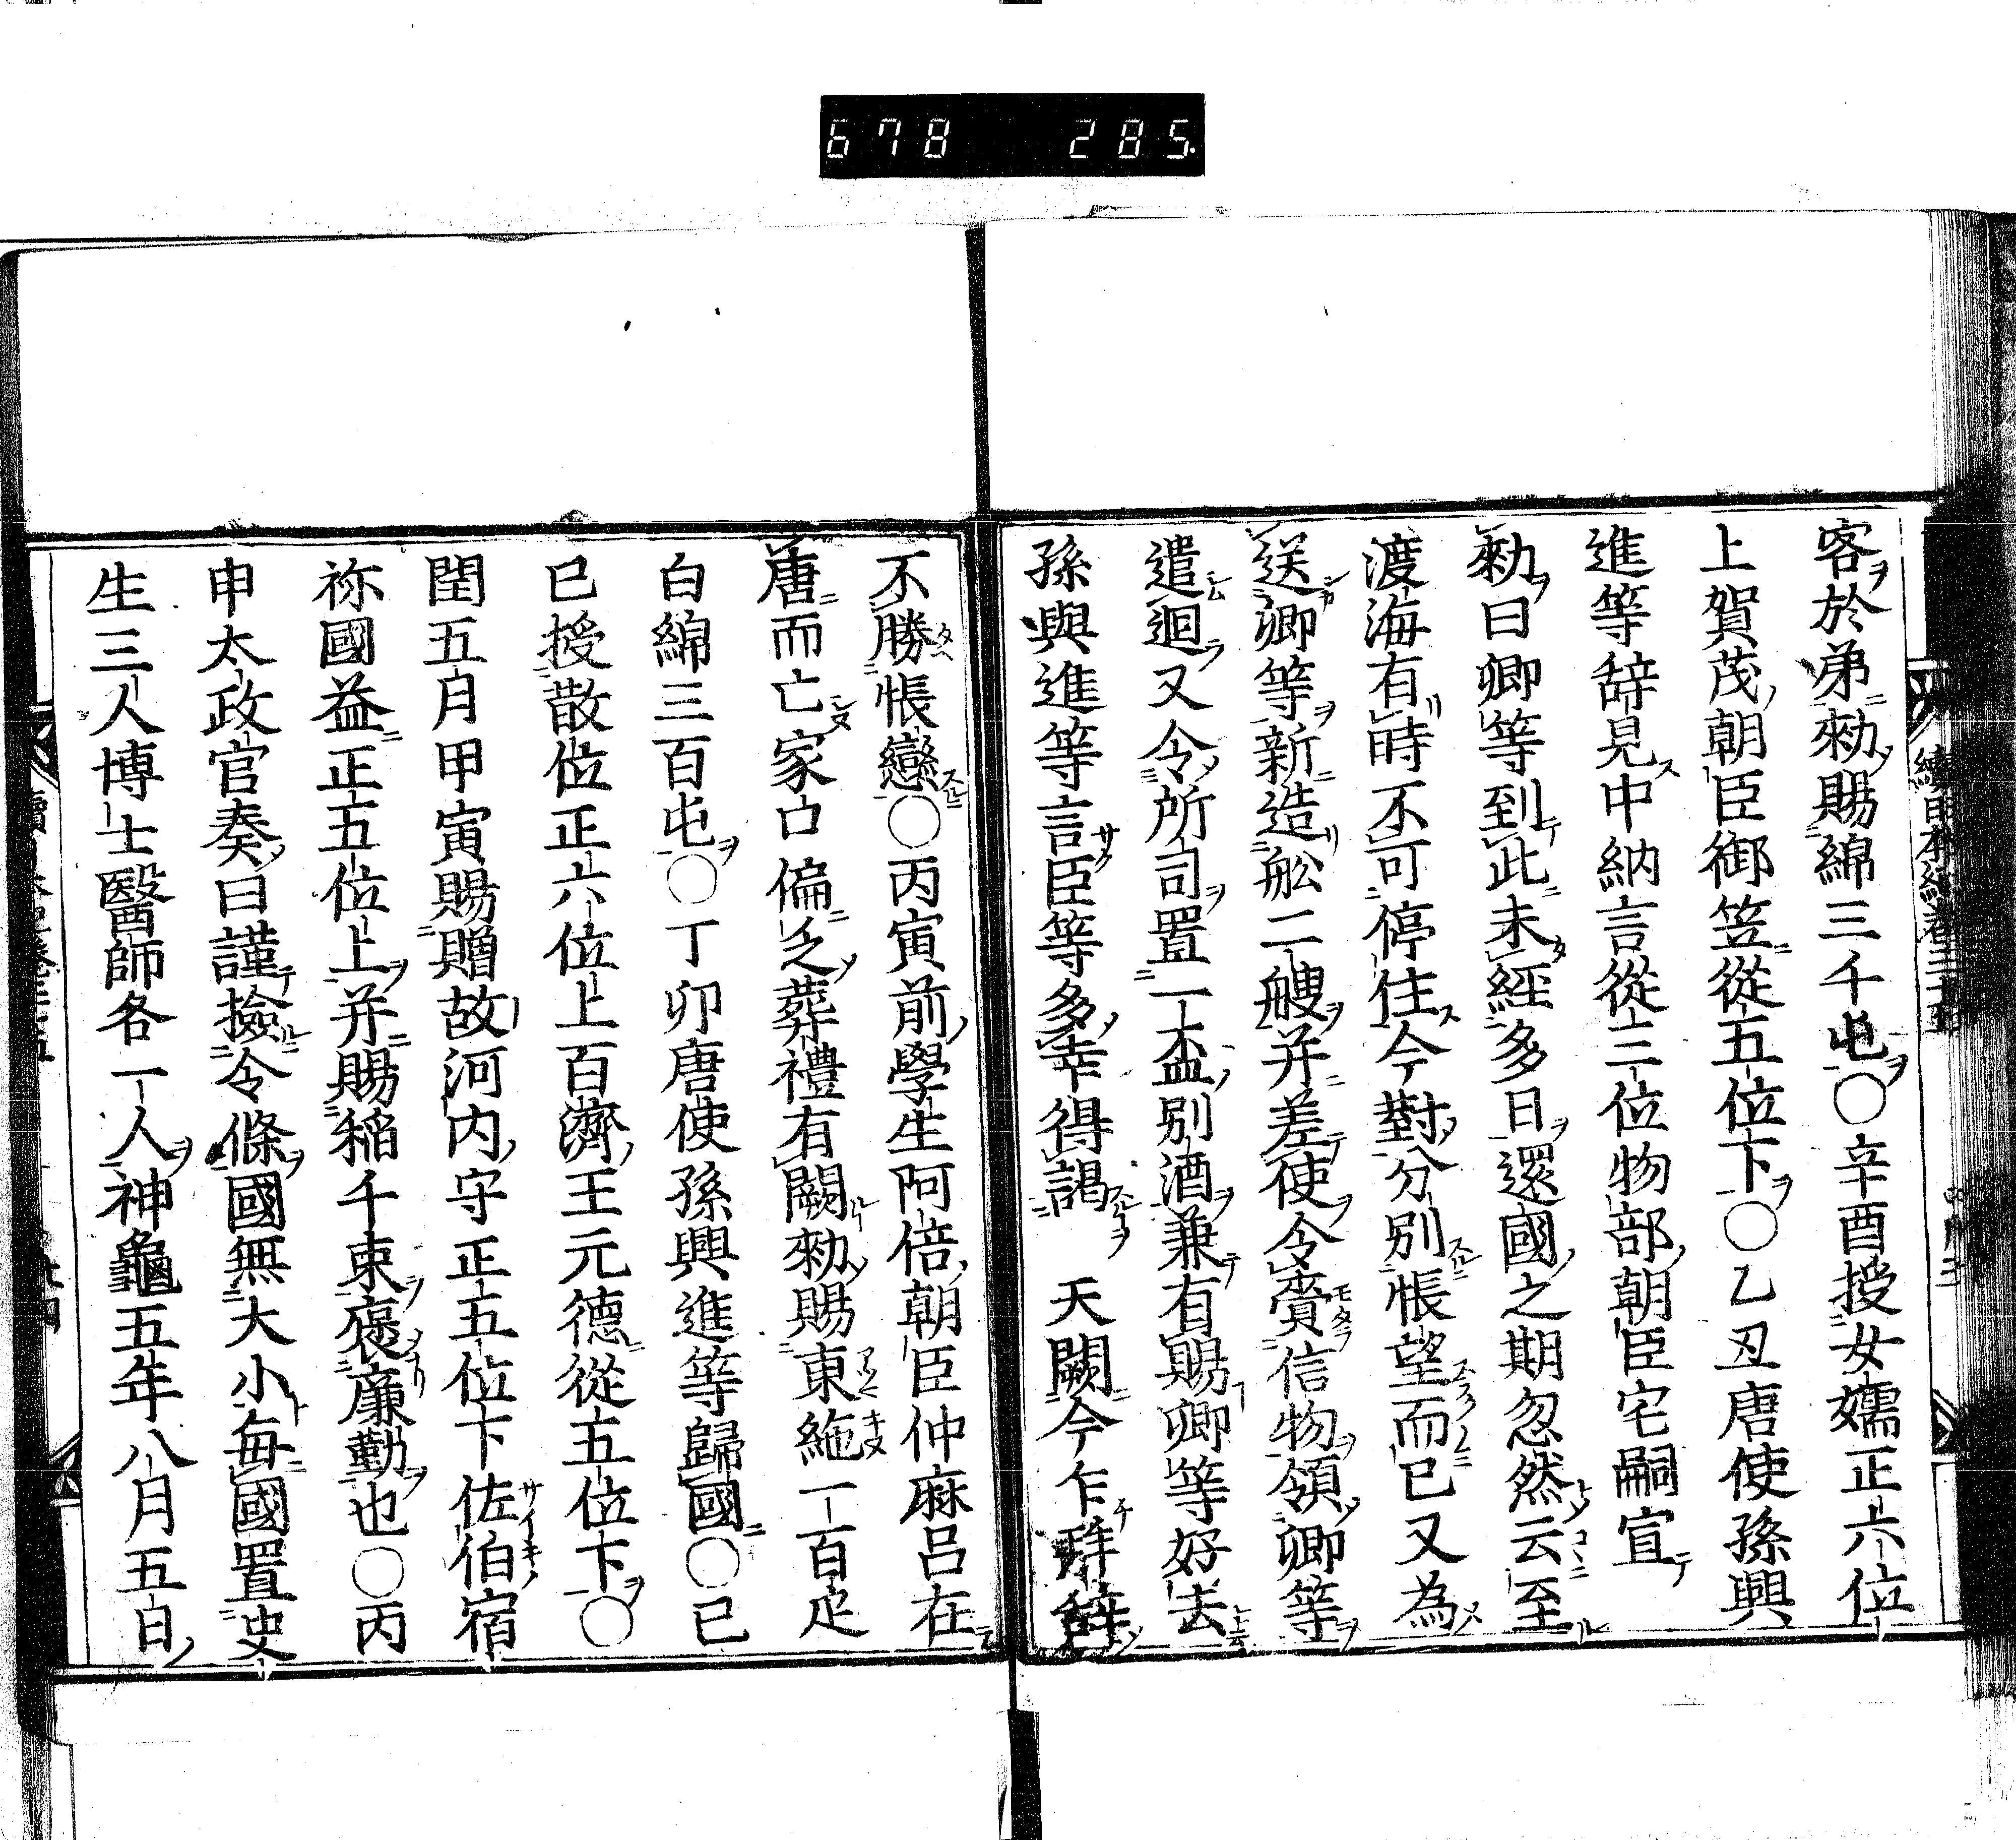 678 285.
客於弟勅賜綿三千屯○辛酉授女孺正六位
上賀茂朝臣御笠從五位下○乙丑唐使孫興
進等辞見中納言從三位物部朝臣宅嗣宣
勅曰卿等到此未經多日還國之期忽然云至
渡海有時不可停住今對分別悵望而已又為
送卿等新造舩二艘并差使令齎信物領卿等
遣迴又令所司置一盃別酒兼有賜卿等好去
孫興進等言臣等多幸得謁 天闕今乍拜辭
不勝悵戀○丙寅前學生阿倍朝臣仲麻呂在
唐而亡家口偏乏葬禮有闕勅賜東絁一百疋
白綿三百屯○丁卯唐使孫興進等歸國○己
巳授散位正六位上百濟王元德從五位下○
閏五月甲寅賜贈故河内守正五位下佐伯宿
祢國益正五位上并賜稲千束褒廉勤也○丙
申太政官奏曰謹撿令條國無大小毎國置史
生三人博士醫師各一人神龜五年八月五日